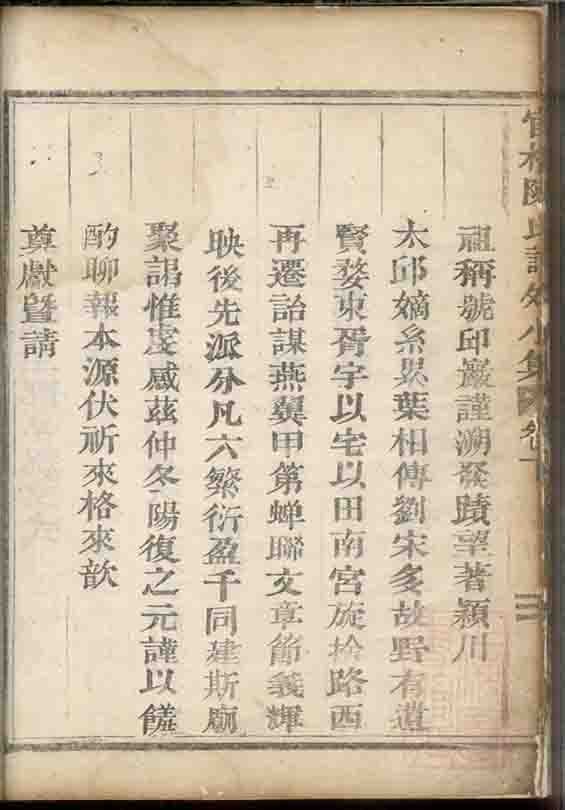 官林陳氏譜外小集 卷一
祖稱號邱巖謹溯發蹟望著潁川
太邱嫡系累葉相傳劉宋多故野有遺
賢婺東胥宇以宅以田南宮旋捨路西
再遷詒謀燕翼甲第蟬聯文章節義輝
映後先派分凡六繁衍盈千同建斯廟
聚謁惟虔感茲仲冬陽復之元謹以饈
酌聊報本源伏祈來格來歆
奠獻暨請